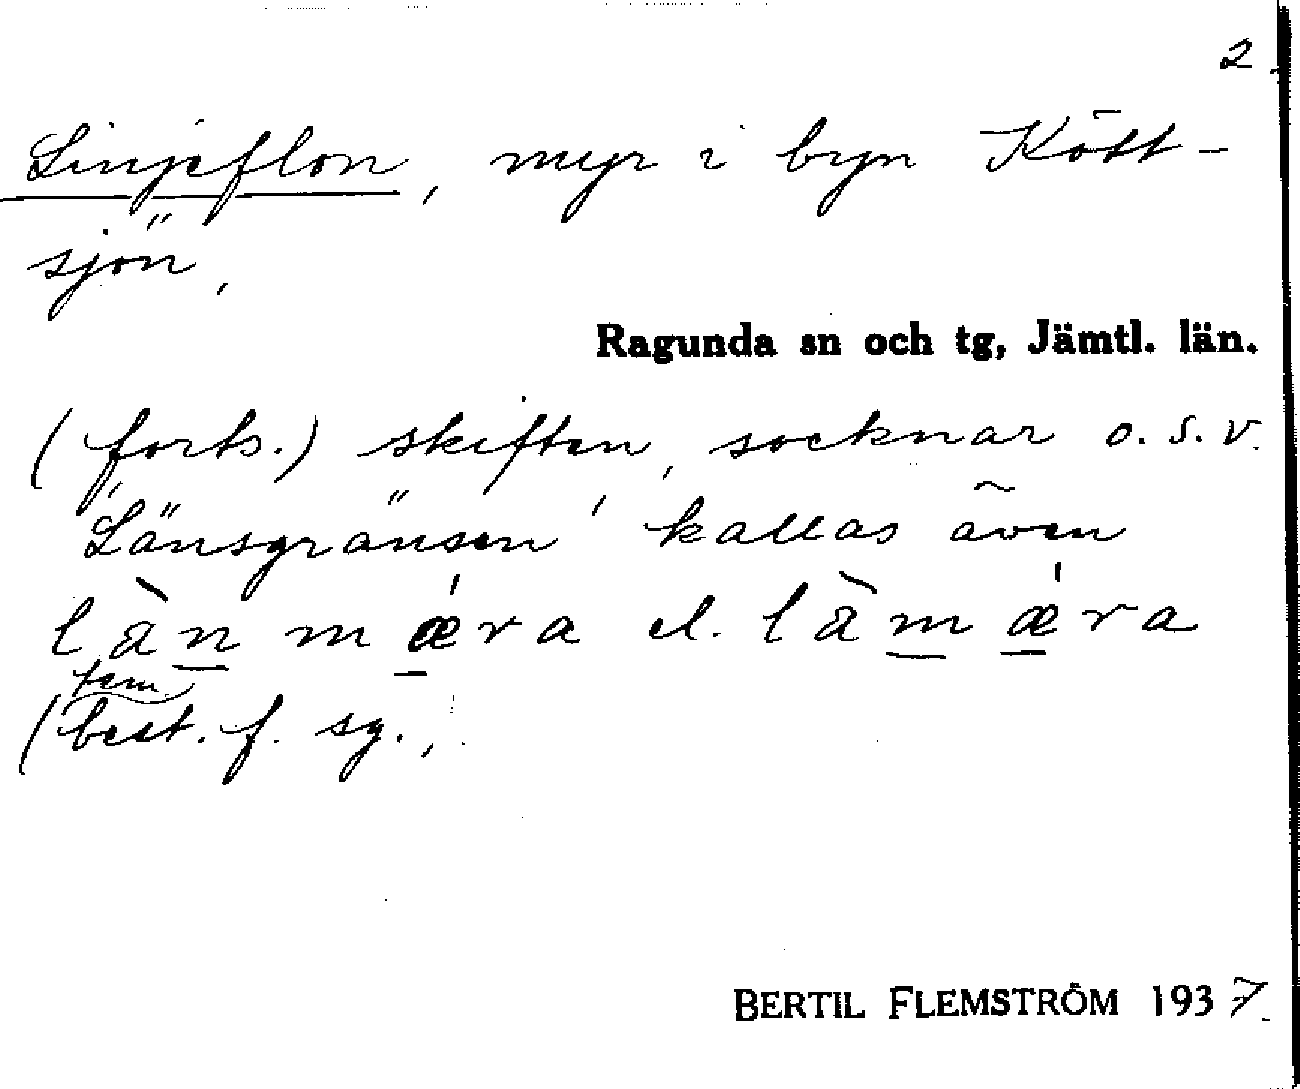 2.
Linjeflon, myr i byn Kött-
sjön,
Ragunda sn och tg, Jämtl. län.
(forts.) skiften, socknar o.s.v.
"Länsgränsen" kallas även
lä̀nmǽra el. lä̀mǽra
fem
(best. f. sg.,
BERTIL FLEMSTRÖM 1937.